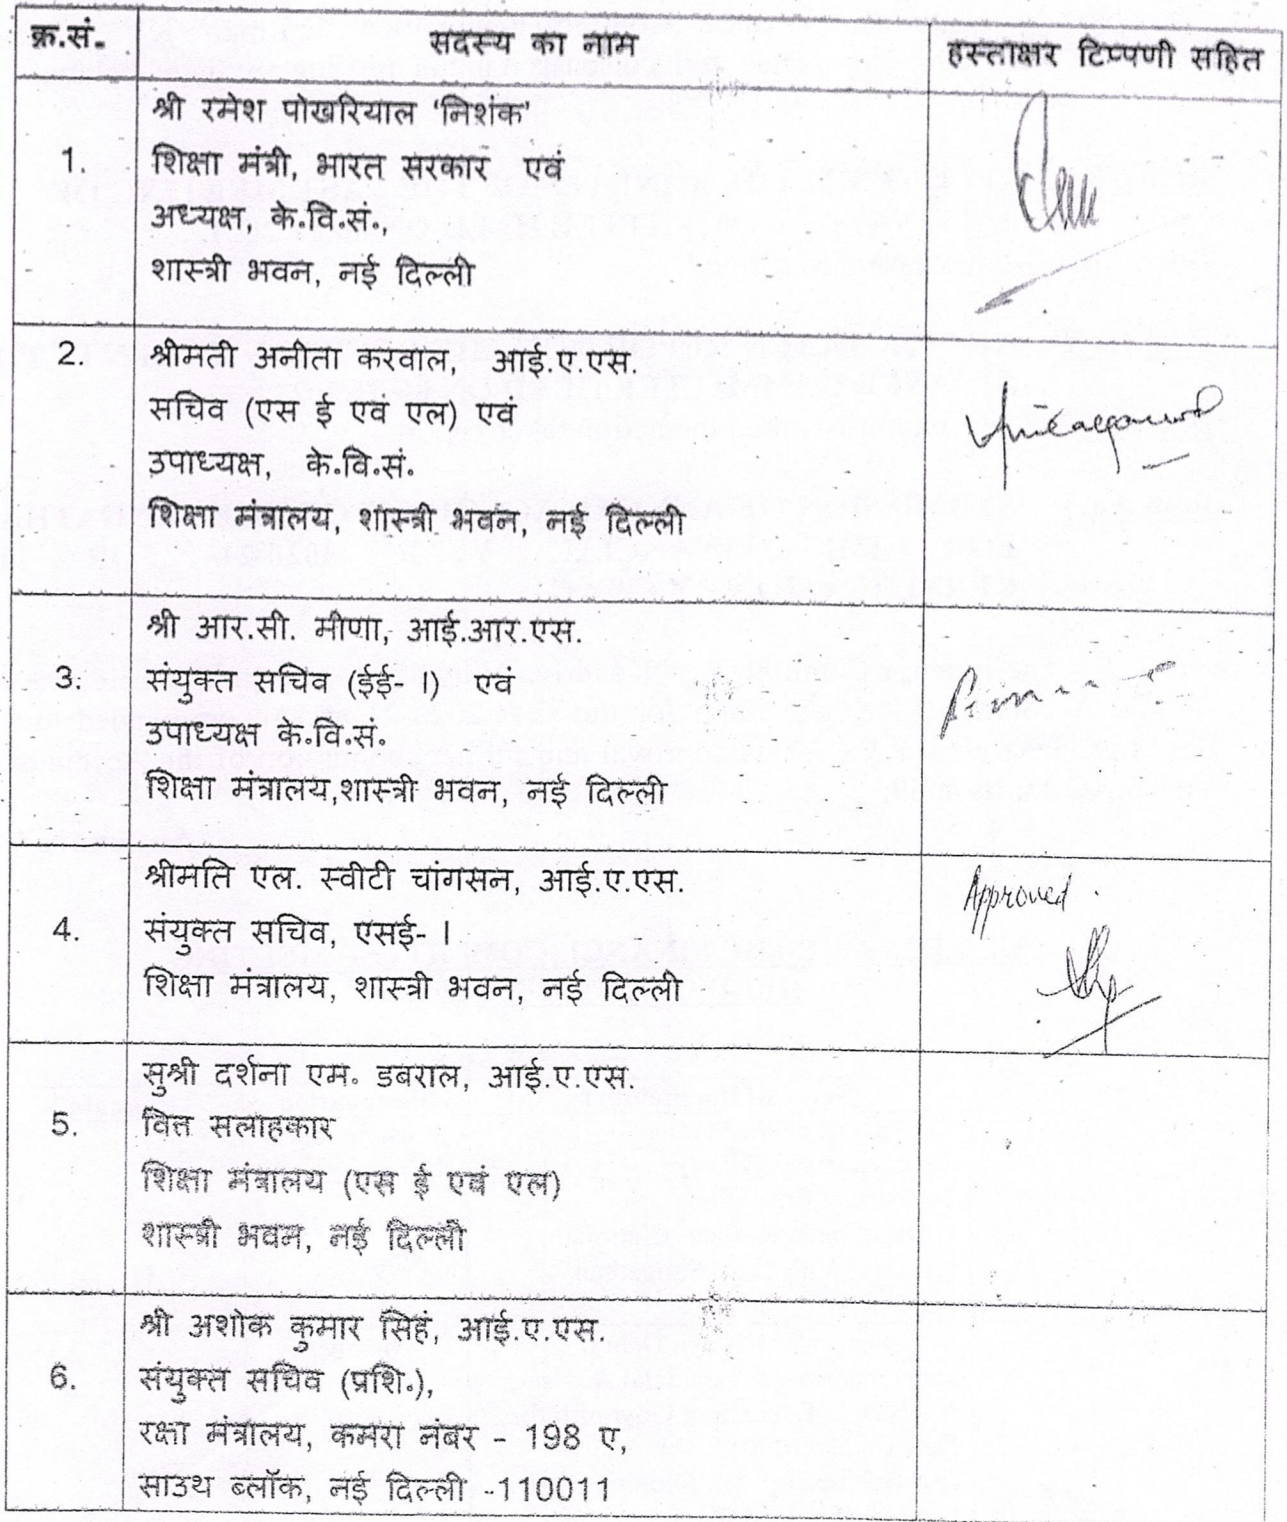 क्र.सं. सदस्य का नाम हस्ताक्षर टिप्पणी सहित
श्री रमेश पोखरियाल 'निशंक'
1. शिक्षा मंत्री, भारत सरकार एवं
अध्यक्ष, के.वि.सं.,
शास्त्री भवन, नई दिल्ली
2. श्रीमती अनीता करवाल, आई.ए.एस.
सचिव (एस ई एवं एल) एवं
उपाध्यक्ष, के.वि.सं.
शिक्षा मंत्रालय, शास्त्री भवन, नई दिल्ली
श्री आर.सी. मीणा, आई.आर.एस.
3. संयुक्त सचिव (ईई- I) एवं
उपाध्यक्ष के.वि.सं.
शिक्षा मंत्रालय,शास्त्री भवन, नई दिल्ली
श्रीमति एल. स्वीटी चांगसन, आई.ए.एस. Approved
4. संयुक्त सचिव, एसई- I
शिक्षा मंत्रालय, शास्त्री भवन, नई दिल्ली
सुश्री दर्शना एम. डबराल, आई.ए.एस.
5. वित्त सलाहकार
शिक्षा मंत्रालय (एस ई एवं एल)
शास्त्री भवन, नई दिल्ली
श्री अशोक कुमार सिहं, आई.ए.एस.
6. संयुक्त सचिव (प्रशि.),
रक्षा मंत्रालय, कमरा नंबर - 198 ए,
साउथ ब्लॉक, नई दिल्ली -110011